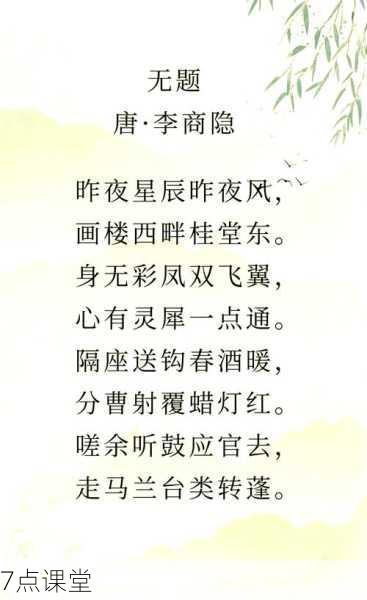 无题
唐·李商隐
昨夜星辰昨夜风，
画楼西畔桂堂东。
身无彩凤双飞翼，
心有灵犀一点通。
隔座送钩春酒暖，
分曹射覆蜡灯红。
嗟余听鼓应官去，
走马兰台类转蓬。
7点课堂